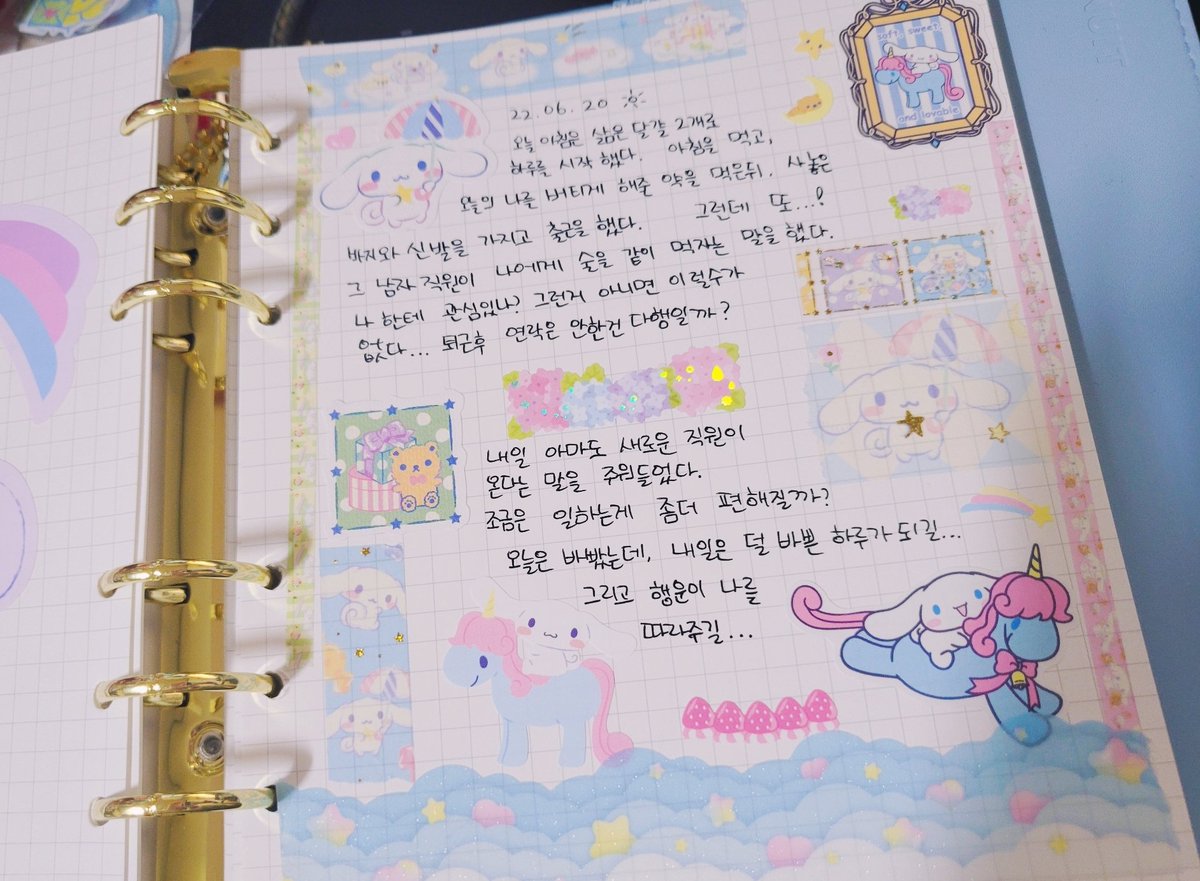 22.06.20
오늘 아침은 삶은 달걀 2개로
하루를 시작 했다. 아침을 먹고,
오늘의 나를 버티게 해준 약을 먹은뒤. 사놓은
바지와 신발을 가지고 출근을 했다. 그런데 또...!
그 남자 직원이 나에게 술을 같이 먹자는 말을 했다.
나 한테 관심있나? 그런거 아니면 이럴수가
없다... 퇴근후 연락은 안한건 다행일까?
내일 아마도 새로운 직원이
온다는 말을 주워들었다.
조금은 일하는게 좀더 편해질까?
오늘은 바빴는데, 내일은 덜 바쁜 하루가 되길...
그리고 행운이 나를
따라주길...
soft, sweet,
and lovable